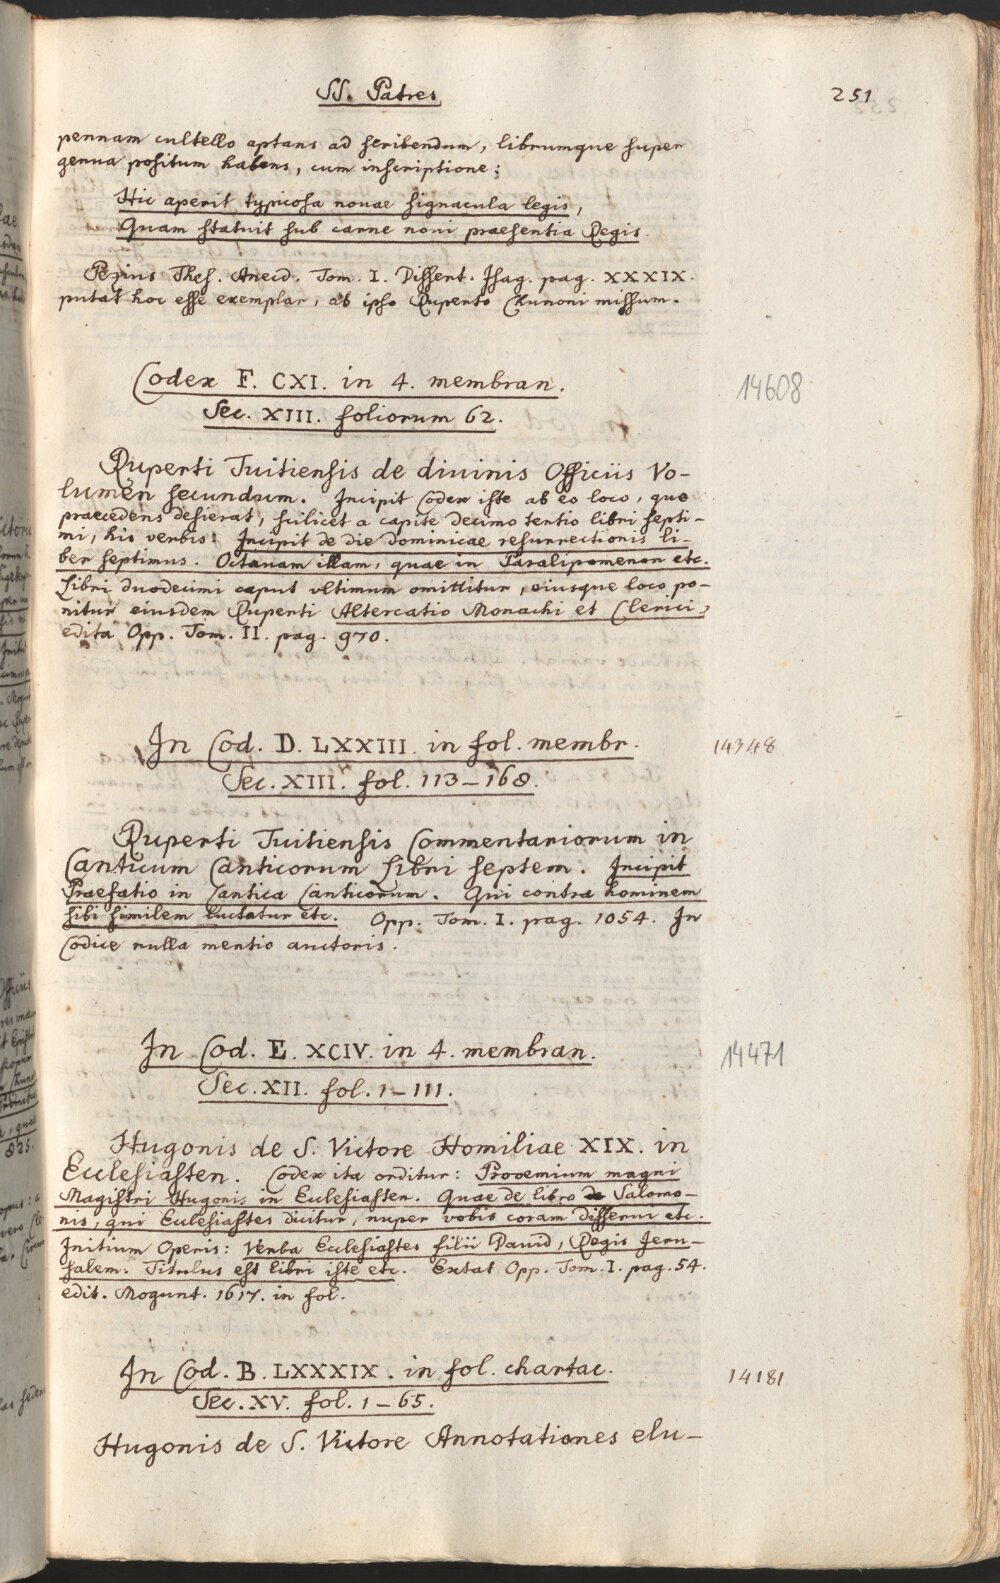 SS. Patres
251
pennam cultello aptans ad scribendum, librumque super
genua positum habens, cum inscriptione:
Hic aperit typicosa novae signacula legis,
Quam statuit sub carne novi praesentia Regis.
Pezius Thes. Anecd. Tom. I. Dissert. Isag. pag. XXXIX.
putat hoc esse exemplar, ab ipso Ruperto Chunoni missum.
Codex F. CXI. in 4. membran.
14608
Sec. XIII. foliorum 62.
Ruperti Tuitiensis de divinis Officiis Vo-
lumen secundum. Incipit Codex iste ab eo loco, quo
praecedens desierat, scilicet a capite decimo tertio libri septi-
mi, his verbis: Incipit de die dominicae resurrectionis li-
ber septimus. Octavam illam, quae in Paralipomenon etc.
Libri duodecimi caput ultimum omittitur, eiusque loco po-
nitur eiusdem Ruperti Altercatio Monachi et Clerici,
edita Opp. Tom. II. pag. 970.
In Cod. D. LXXIII. in fol. membr.
14348
Sec. XIII. fol. 113-168.
Ruperti Tuitiensis Commentariorum in
Canticum Canticorum Libri septem. Incipit
Praefatio in Cantica Canticorum. Qui contra hominem
sibi similem luctatur etc. Opp. Tom. I. pag. 1054. In
Codice nulla mentio auctoris.
In Cod. E. XCIV. in 4. membran.
14471
Sec. XII. fol. 1-111.
Hugonis de S. Victore Homiliae XIX. in
Ecclesiasten. Codex ita orditur: Prooemium magni
Magistri Hugonis in Ecclesiasten. Quae de libro Salomo-
nis, qui Ecclesiastes dicitur, nuper vobis coram disserui etc.
Initium Operis: Verba Ecclesiastes filii David, Regis Jeru-
salem. Titulus est libri iste etc. Extat Opp. Tom. I. pag. 54.
edit. Mogunt. 1617. in fol.
In Cod. B. LXXXIX. in fol. chartac.
14181
Sec. XV. fol. 1-65.
Hugonis de S. Victore Annotationes elu-